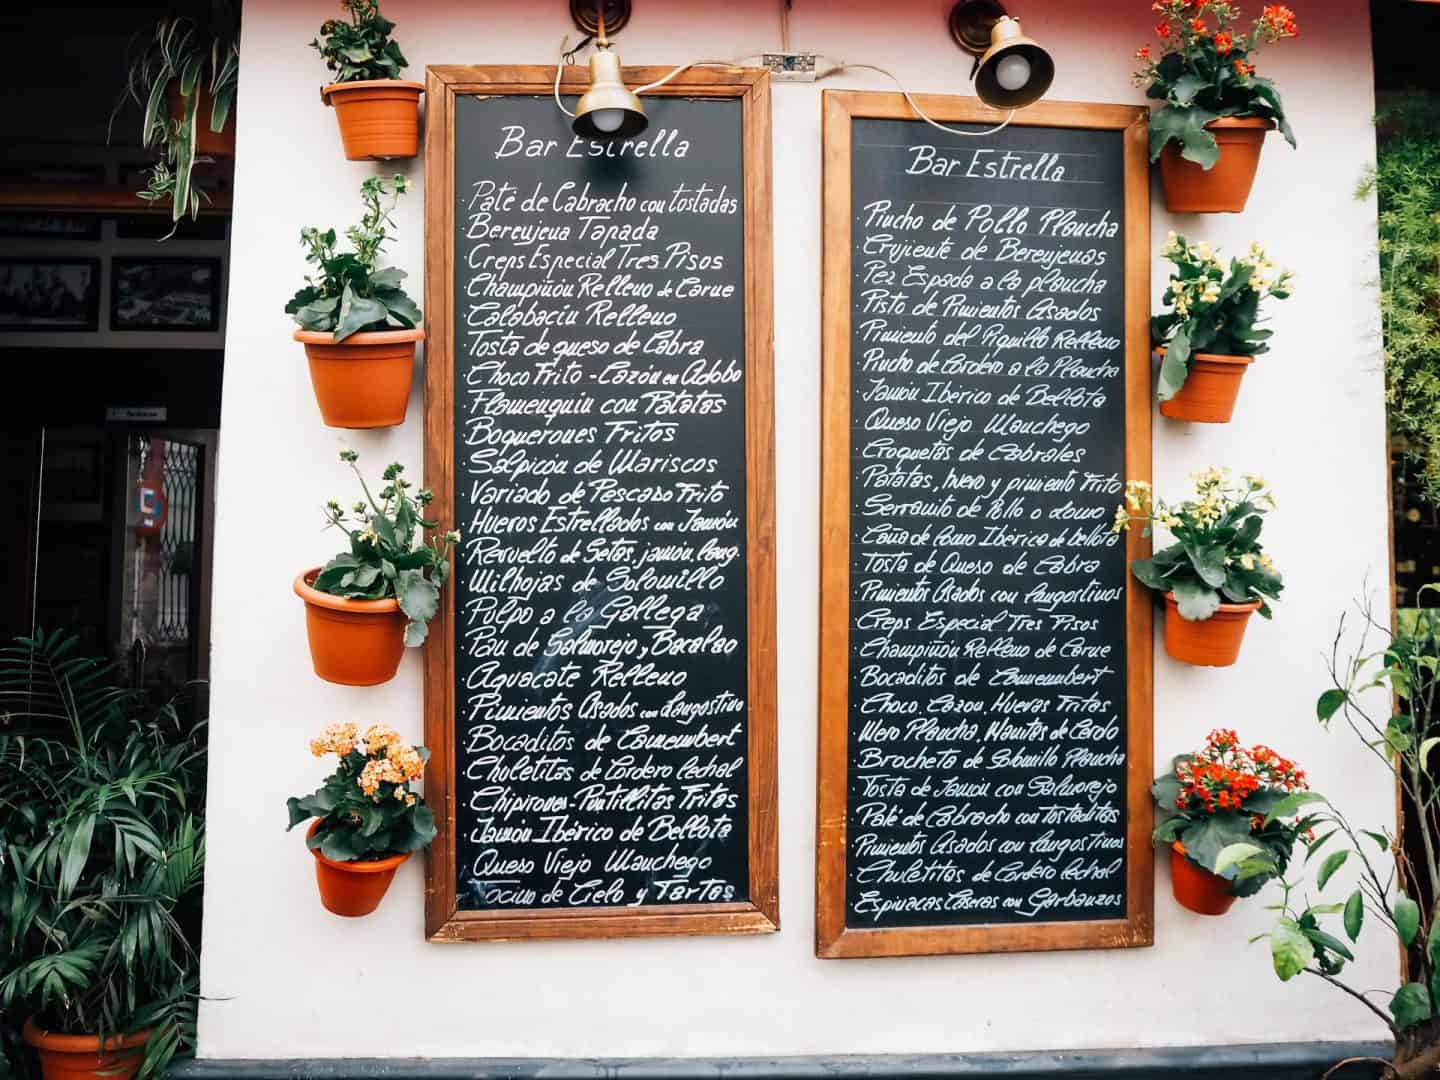 Bar Estrella
· Paté de Cabracho con tostadas
· Berenjena Tapada
· Creps Especial Tres Pisos
· Champiñón Relleno de Carne
· Calabacín Relleno
· Tosta de queso de Cabra
· Choco Frito - Cazón en Adobo
· Flamenquín con Patatas
· Boquerones Fritos
· Salpicón de Mariscos
· Variado de Pescado Frito
· Huevos Estrellados con Jamón
· Revuelto de Setas, jamón, lang.
· Milhojas de Solomillo
· Pulpo a la Gallega
· Pan de Salmorejo y Bacalao
· Aguacate Relleno
· Pimientos Asados con Langostino
· Bocaditos de Camembert
· Chuletitas de Cordero lechal
· Chipirones - Puntillitas Fritas
· Jamón Ibérico de Bellota
· Queso Viejo Manchego
Tocino de Cielo y Tartas
Bar Estrella
· Pincho de Pollo Plancha
· Crujiente de Berenjenas
· Pez Espada a la plancha
· Pisto de Pimientos Asados
· Pimiento del Piquillo Relleno
· Pincho de Cordero a la Plancha
· Jamón Ibérico de Bellota
· Queso Viejo Manchego
· Croquetas de Cabrales
· Patatas, huevo y pimiento Frito
· Serranito de Pollo o Lomo
· Caña de Lomo Ibérica de bellota
· Tosta de Queso de Cabra
· Pimientos Asados con langostinos
· Creps Especial Tres Pisos
· Champiñón Relleno de Carne
· Bocaditos de Camembert
· Choco, Cazon, Huevas Fritas
· Mero Plancha, Manitas de Cerdo
· Brocheta de Solomillo Plancha
· Tosta de Jamón con Salmorejo
· Paté de Cabracho con tostaditas
· Pimientos Asados con langostinos
· Chuletitas de Cordero lechal
· Espinacas Caseras con Garbanzos